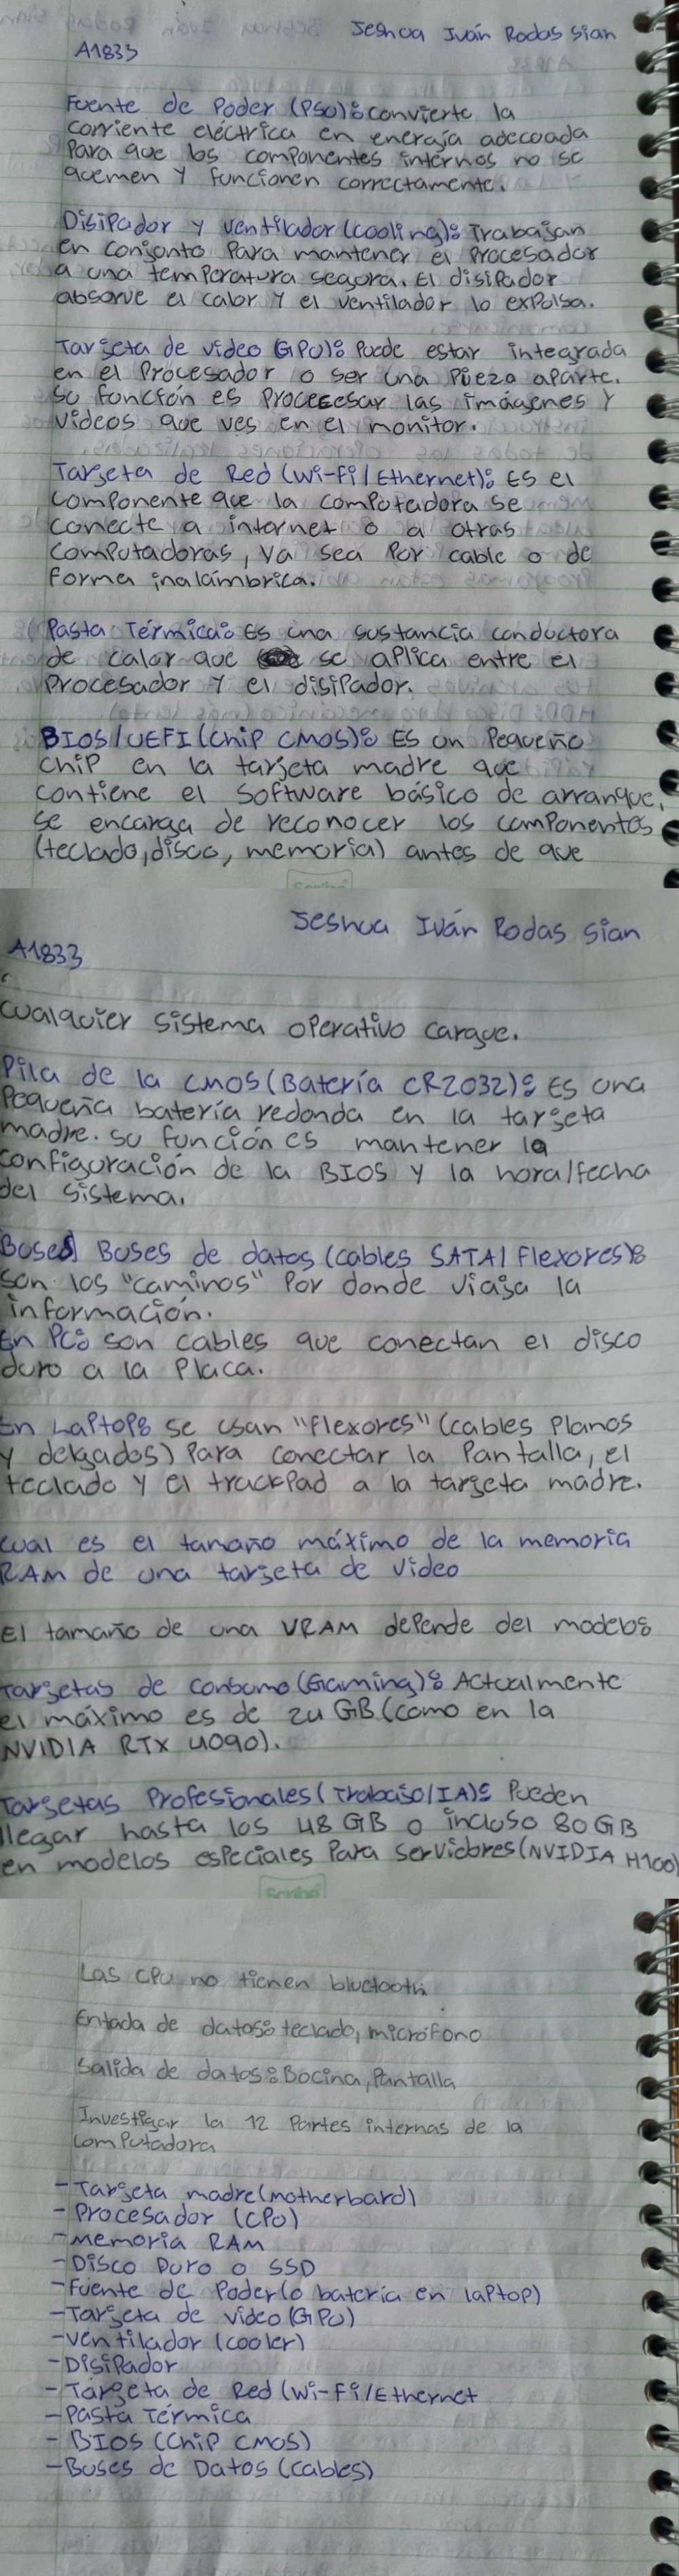 Jeshua Iván Rodas Sian
A1833
Fuente de Poder (PSU): convierte la
corriente eléctrica en energía adecuada
Para que los componentes internos no se
quemen y funcionen correctamente.
Disipador y ventilador (cooling): Trabajan
en conjunto Para mantener el Procesador
a una temperatura segura. El disipador
absorve el calor y el ventilador lo expulsa.
Tarjeta de video (GPU): Puede estar integrada
en el Procesador o ser una Pieza aparte.
su función es procecesar las imágenes y
videos que ves en el monitor.
Tarjeta de Red (Wi-Fi/Ethernet): Es el
componente que la computadora se
conecte a internet o a otras
computadoras, ya sea Por cable o de
forma inalámbrica.
Pasta Térmica: Es una sustancia conductora
de calor que se aplica entre el
Procesador y el disipador.
BIOS/UEFI (chip CMOS): Es un Pequeño
chip en la tarjeta madre que
contiene el software básico de arranque,
se encarga de reconocer los componentes
(teclado, disco, memoria) antes de que
Scribe
Jeshua Iván Rodas Sian
A1833
cualquier sistema operativo cargue.
Pila de la CMOS (Batería CR2032): Es una
Pequeña batería redonda en la tarjeta
madre. su función es mantener la
configuración de la BIOS y la hora/fecha
del sistema.
Buses de datos (cables SATA/Flexores):
son los "caminos" Por donde viaja la
información.
En PC: son cables que conectan el disco
duro a la Placa.
En Laptop: se usan "flexores" (cables planos
y delgados) Para conectar la Pantalla, el
teclado y el trackpad a la tarjeta madre.
cual es el tamaño máximo de la memoria
RAM de una tarjeta de video
El tamaño de una VRAM depende del modelo:
Tarjetas de consumo (Gaming): Actualmente
el máximo es de 24 GB (como en la
NVIDIA RTX 4090).
Tarjetas Profesionales (Trabajo/IA): Pueden
llegar hasta los 48 GB o incluso 80 GB
en modelos especiales Para servidores (NVIDIA H100)
Scribe
Las CPU no tienen bluetooth.
Entada de datos: teclado, micrófono
Salida de datos: Bocina, Pantalla
Investigar la 12 Partes internas de la
computadora
- Tarjeta madre (motherbard)
- Procesador (CPU)
- Memoria RAM
- Disco Duro o SSD
- Fuente de Poder (o bateria en laptop)
- Tarjeta de video (GPU)
- Ventilador (cooler)
- Disipador
- Tarjeta de Red (Wi-Fi/Ethernet
- Pasta Térmica
- BIOS (Chip CMOS)
- Buses de Datos (cables)